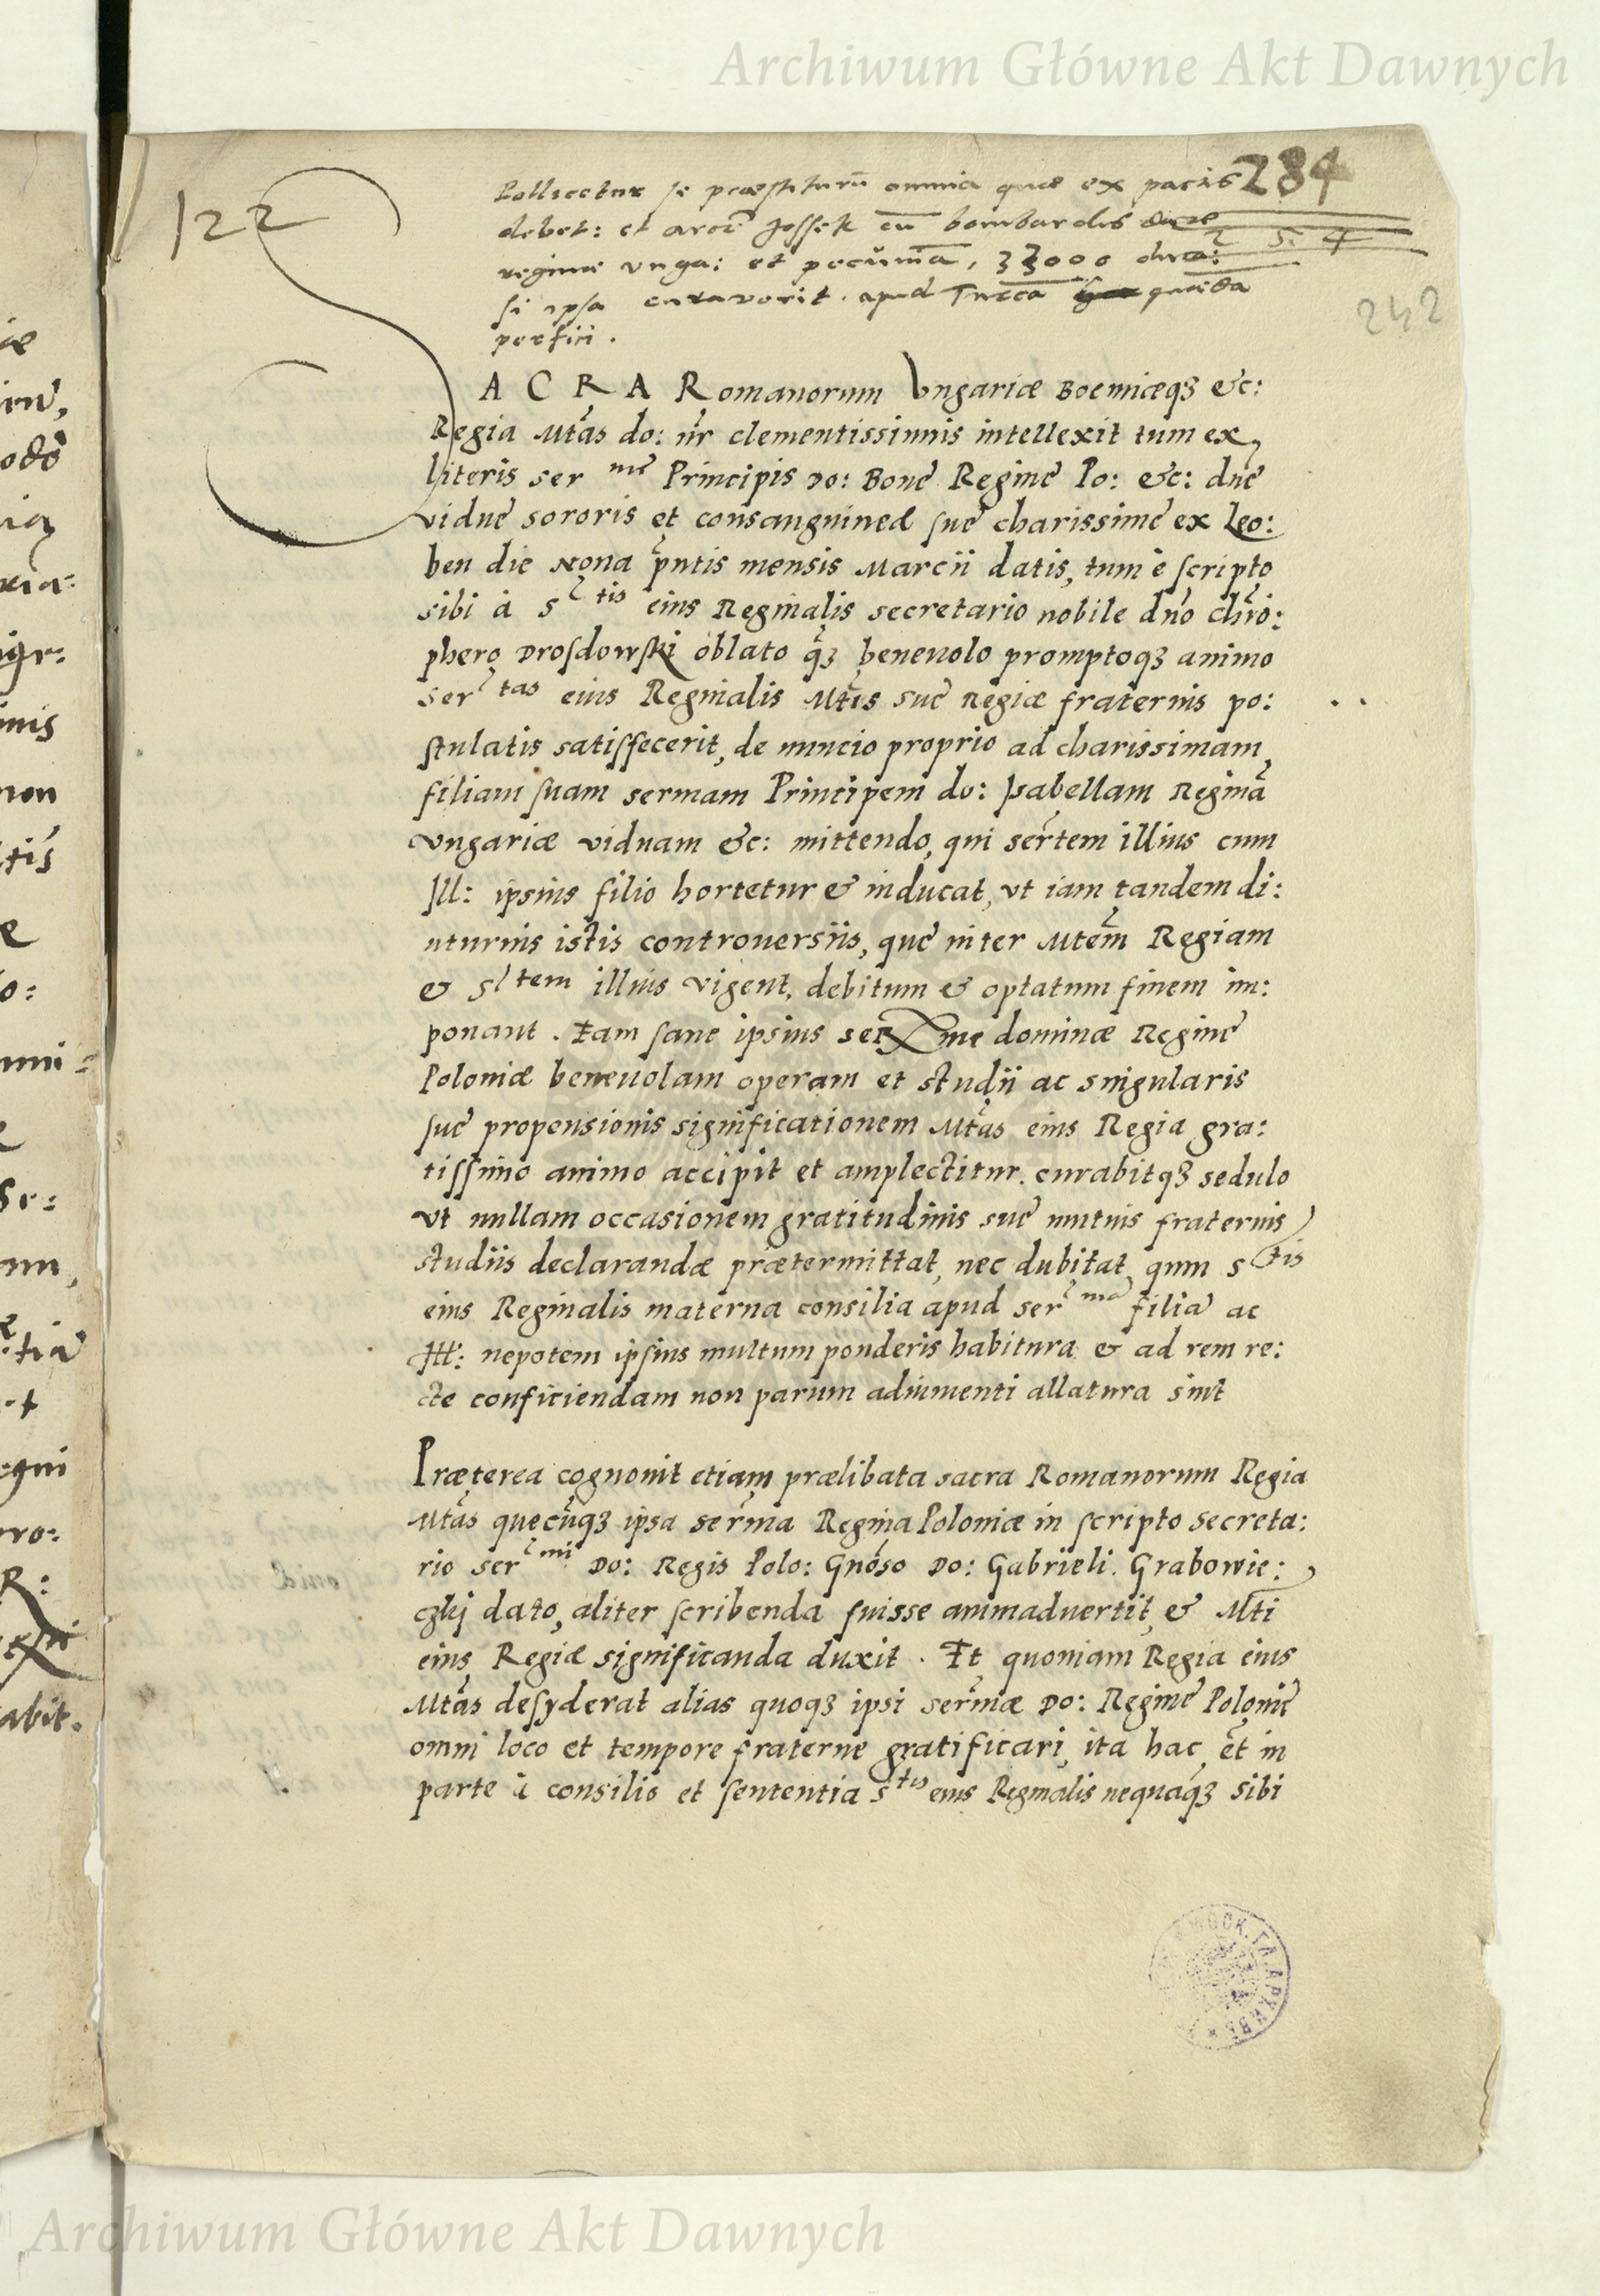 Archiwum Główne Akt Dawnych
122
284
Pollicetur se præstiturũ omnia quæ ex pactis
debet: et arcẽ Jossek cũ bombardis dare
2 5 4
reginæ vnga: et pecuniã, 33000 duca:
242
si ipsa curaverit apud Turcã quædã
perfici.
SACRA Romanorum Vngariæ Boemiæqꝫ &c:
Regia Mtãs do: nr̃ clementissimus intellexit tum ex
literis ser me Principis Do: Bone Regine Po: &c: dne
vidue sororis et consanguinee sue charissime ex Leo:
ben die Nona p̃ntis mensis Marcii datis, tum è scripto
sibi à S tis eius Reginalis secretario nobile dño Chrõ:
phero Drosdowski oblato q̃ꝫ beneuolo promptoqꝫ animo
Ser tas eius Reginalis Mtĩs sue Regiæ fraternis po:
stulatis satisfecerit, de nuncio proprio ad charissimam
filiam suam sermam Principem do: Isabellam Reginã
Vngariæ viduam &c: mittendo, qui sertem illius cum
Ill: ipsius filio hortetur & inducat, vt iam tandem di:
uturnis istis controuersiis, que inter Mtem Regiam
& S tem illius vigent, debitum & optatum finem im:
ponant. Eam sane ipsius Ser me dominæ Regine
Poloniæ beneuolam operam et studii ac singularis
sue propensionis significationem Mtãs eius Regia gra:
tissimo animo accipit et amplectitur. curabitqꝫ sedulo
vt nullam occasionem gratitudinis sue mutuis fraternis
studiis declarandæ prætermittat, nec dubitat, quin S tis
eius Reginalis materna consilia apud ser mã filiã ac
Ill: nepotem ipsius multum ponderis habitura & ad rem re:
cte conficiendam non parum adiumenti allatura sint
Præterea cognouit etiam prælibata sacra Romanorum Regia
Mtãs quecũqꝫ ipsa serm̃a Regina Poloniæ in scripto secreta:
rio ser mi Do: Regis Polo: Gnõso Do: Gabrieli Grabowie:
czkj dato, aliter scribenda fuisse animaduertit, & Mti
eius Regiæ significanda duxit. Et quoniam Regia eius
Mtãs desyderat alias quoqꝫ ipsi serm̃æ Do: Regine Polonie
omni loco et tempore fraterne gratificari, ita hac ẽt in
parte à consilio et sententia S tis eius Reginalis nequaq̃ꝫ sibi
Archiwum Główne Akt Dawnych